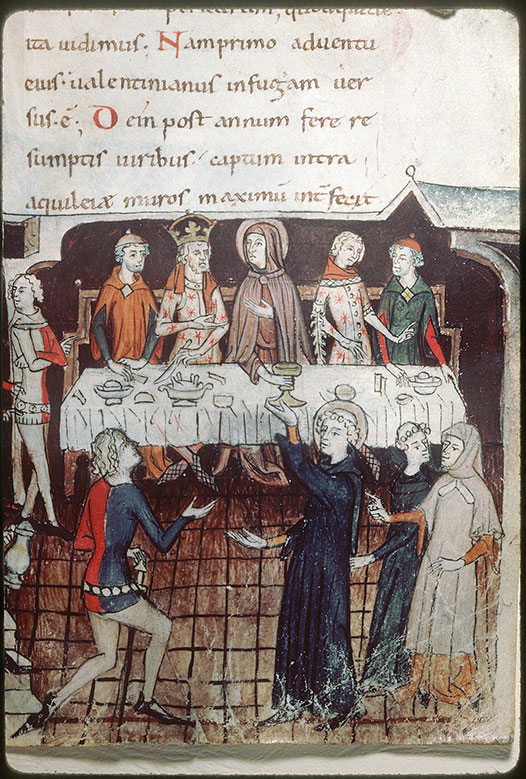 ita uidimus. Namprimo aduentu
eius. ualentinianus infugam uer
sus. ē; Dein post annum fere re
sumptis uiribus captum intra
aquileiæ muros maximū int̄fecit